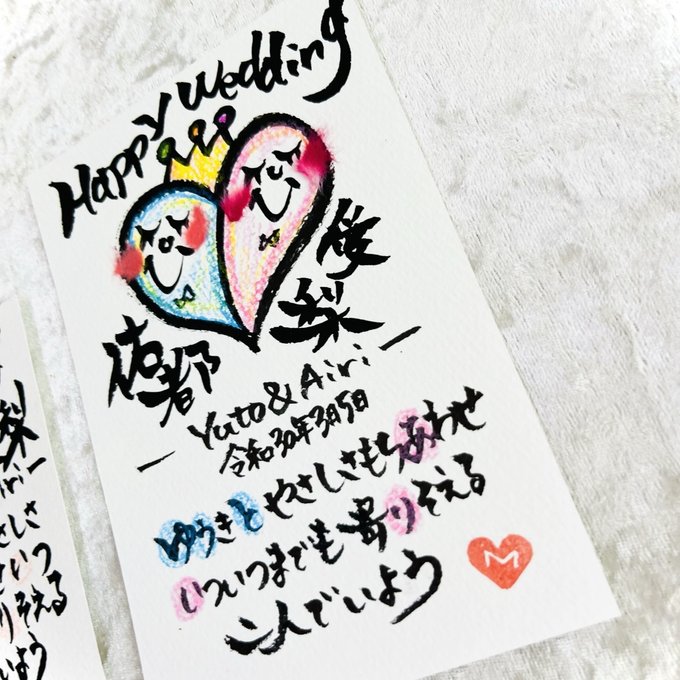 Happy Wedding
佑都
梨
Yuto & Airi
令和30年3月5日
ゆうきと やさしさもちあわせ
いついつまでも寄りそえる
二人でいよう
M
梨
iri
さしさ
いつ
りそえる
いよう